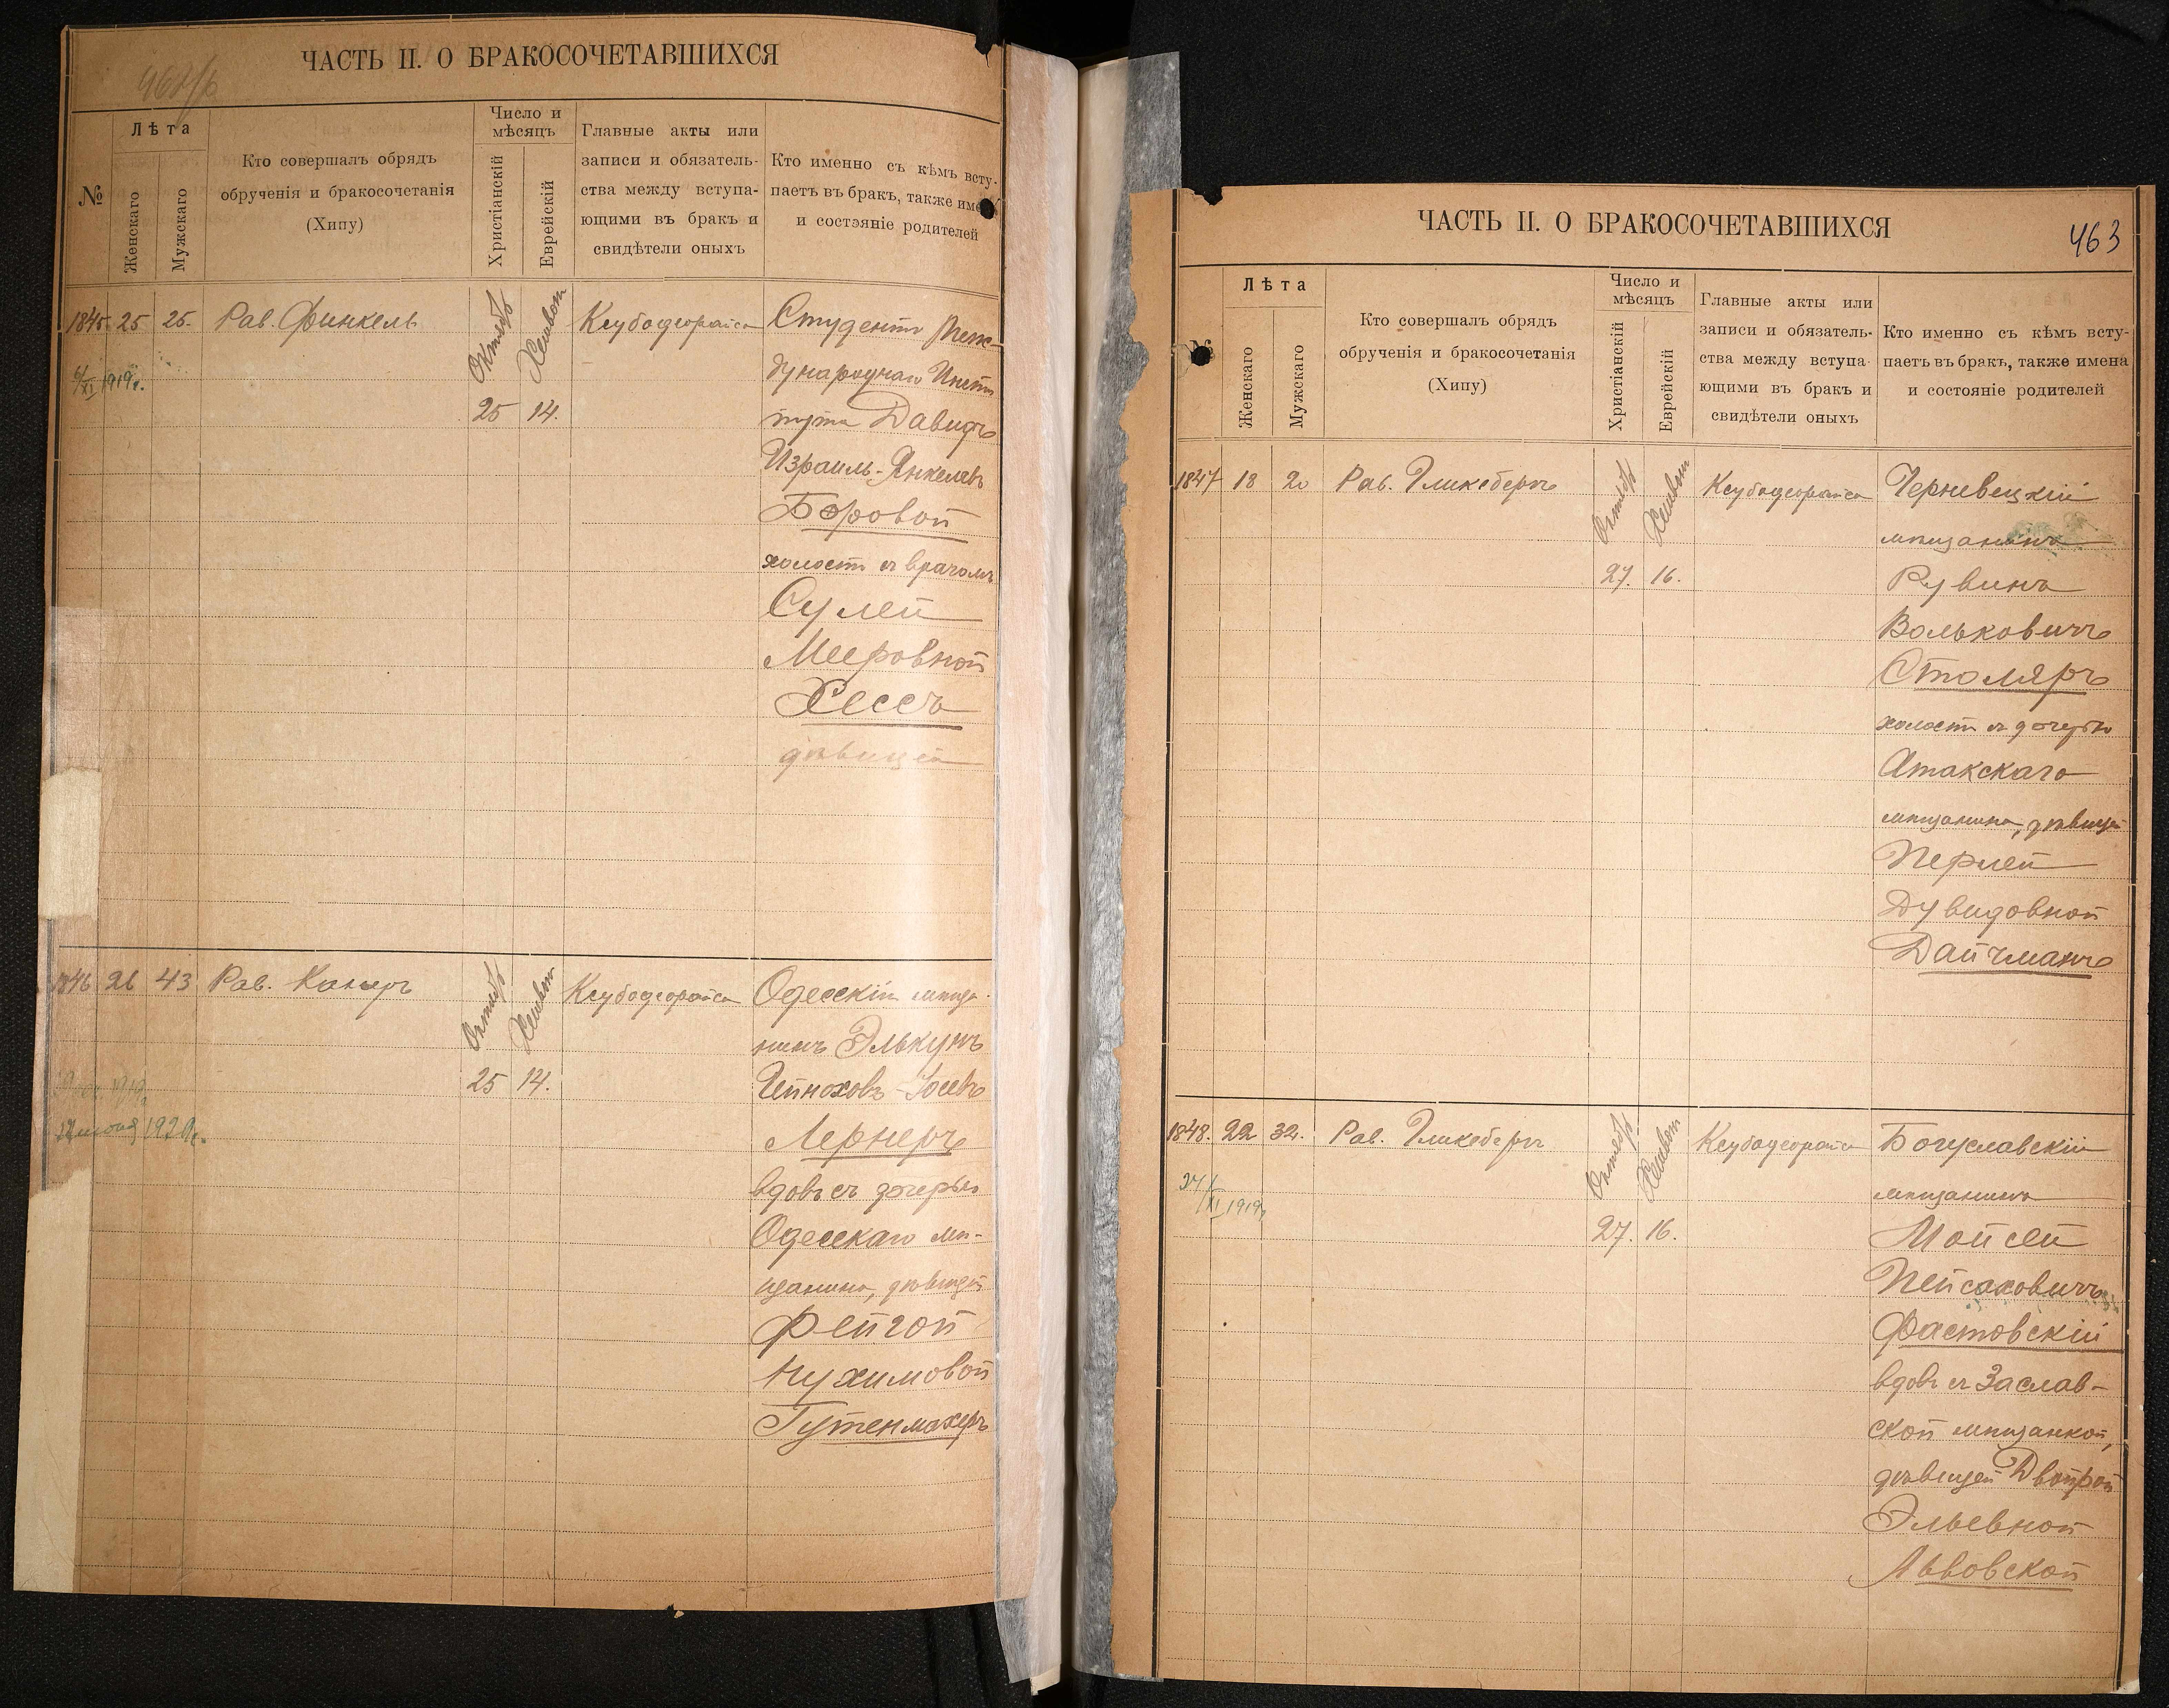 ЧАСТЬ II. О БРАКОСОЧЕТАВШИХСЯ
№
Лѣта
Женскаго
Мужскаго
Кто совершалъ обрядъ
обрученія и бракосочетанія
(Хипу)
Число и
мѣсяцъ
Христіанскій
Еврейскій
Главные акты или
записи и обязатель-
ства между вступа-
ющими въ бракъ и
свидѣтели оныхъ
Кто именно съ кѣмъ всту-
паетъ въ бракъ, также имена
и состояніе родителей
1845. 25 25. Рав. Финкель
Октябр
Хешвон
25 14.
Студентъ Меж-
дународнаго Инсти
тута Давидъ
Израиль-Янкелев
Боровой
холост съ врачомъ
Сулей
Мееровной
Хессъ
дѣвицей
6/XI 1919г.
1846 26 43 Рав. Канеръ
Октябр
Хешвон
25 14.
Одесскій мѣща-
нинъ Элькунъ
Гейнохов-Iосевъ
Лернеръ
вдовъ съ дочерью
Одесскаго мѣ-
щанина, дѣвицей
Фейгой
Нухимовой
Гутенмахеръ
1920г.
ЧАСТЬ II. О БРАКОСОЧЕТАВШИХСЯ
463
№
Лѣта
Женскаго
Мужскаго
Кто совершалъ обрядъ
обрученія и бракосочетанія
(Хипу)
Число и
мѣсяцъ
Христіанскій
Еврейскій
Главные акты или
записи и обязатель-
ства между вступа-
ющими въ бракъ и
свидѣтели оныхъ
Кто именно съ кѣмъ всту-
паетъ въ бракъ, также имена
и состояніе родителей
1847 18 20 Рав. Гликсбергъ
Октябр
Хешвон
27. 16.
Черневецкій
мѣщанинъ
Рувинъ
Вольковичъ
Столяръ
холост съ дочерью
Атакскаго
мѣщанина, дѣвицей
Перлей
Дувидовной
Дайчманъ
1848. 22 32. Рав. Гликсбергъ
Октябр
Хешвон
27. 16.
Богуславскій
мѣщанинъ
Мойсей
Пейсаховичъ
Фастовскій
вдовъ съ Заслав-
ской мѣщанкой,
дѣвицей Двойрой
Эльевной
Львовской
24/XI 1919г